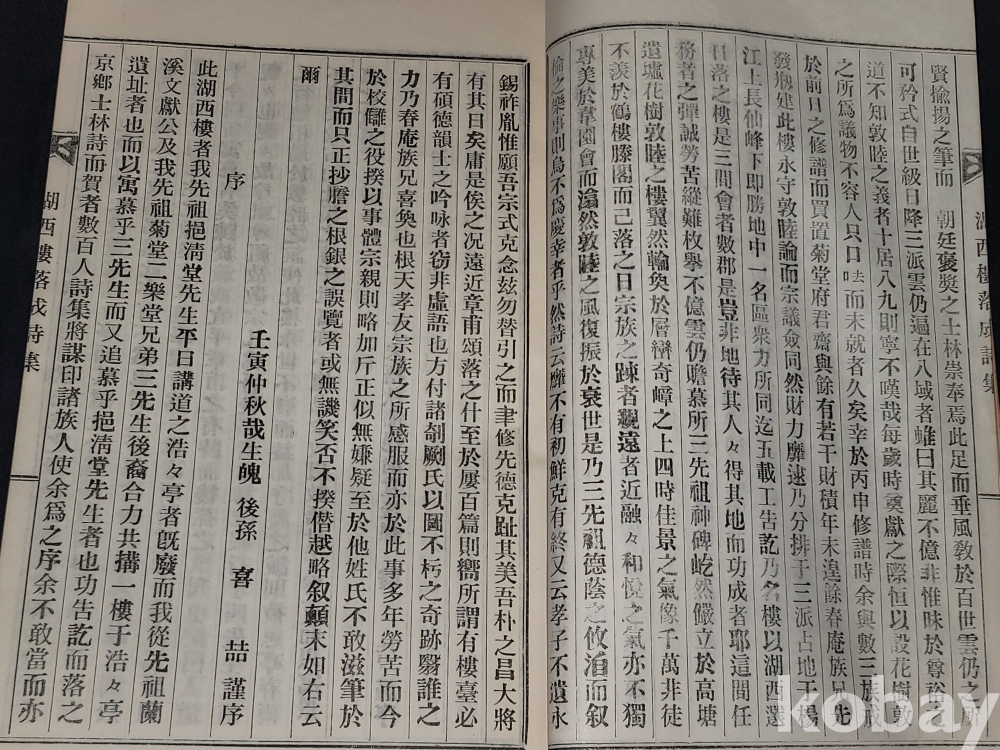 湖西樓落成詩集
賢揄揚之筆而　朝廷褒奬之士林崇奉焉此足而垂風敎於百世雲仍之所
可矜式自世級日降三派雲仍遍在八域者雖曰其麗不億非惟昧於尊
道不知敦睦之義者十居八九則寧不嘆哉每歲時奠獻之際恒以設花樹敦
之所爲議物不容人只口呿而未就者久矣幸於丙申修譜時余與數三族戚
於前日之修譜而買置菊堂府君齋與餘有若干財積年未遑詮春庵族兄先
發刱建此樓永守敦睦論而宗議僉同然財力靡逮乃分排于三派占地于楊
江上長仙峰下卽勝地中一名區衆力所同迄五載工告訖乃名樓以湖西選
日落之樓是三間會者數郡是豈非地待其人々得其地而功成者耶這間任
務者之彈誠勞苦縱難枚擧不億雲仍贍慕所三先祖神碑屹然儼立於高塘
遺墟花樹敦睦之樓翼然輪奐於層巒奇嶂之上四時佳景之氣像千萬非徒
不羨於鶴樓滕閣而己落之日宗族之踈者親遠者近融々和悅之氣亦不獨
專美於韋園會而瀜然敦睦之風復振於衰世是乃三先祖德蔭之攸酒而叙
倫之樂事則烏不爲慶幸者乎然詩云靡不有初鮮克有終又云孝子不遺永
錫祚胤惟願吾宗式克念玆勿替引之而聿修先德克趾其美吾朴之昌大將
有其日矣庸是俟之况遠近章甫頌落之什至於屢百篇則嚮所謂有樓臺必
有碩德韻士之吟咏者窃非虛語也方付諸剞劂氏以圖不朽之奇跡緊誰之
力乃春庵族兄喜奐也根天孝友宗族之所感服而亦於此事多年勞苦而今
於校讎之役揆以事體宗親則略加斤正似無嫌疑至於他姓氏不敢滋筆於
其間而只正抄謄之根銀之誤覽者或無譏笑否不揆僭越略叙顚末如右云
爾
壬寅仲秋哉生魄　後孫　喜　喆　謹序
序
此湖西樓者我先祖挹淸堂先生平日講道之浩々亭者旣廢而我從先祖蘭
溪文獻公及我先祖菊堂二樂堂兄弟三先生後裔合力共搆一樓于浩々亭
遺址者也而以寓慕乎三先生而又追慕乎挹淸堂先生者也功告訖而落之
京鄉士林詩而賀者數百人詩集將謀印諸族人使余爲之序余不敢當而亦
湖西樓落成詩集
kobay